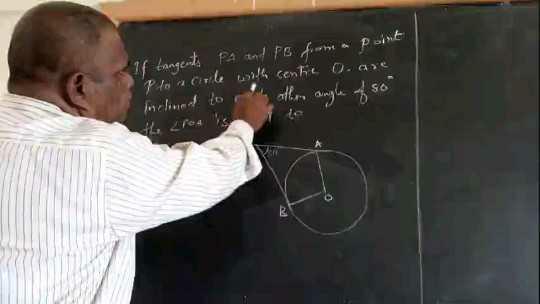 If tangents PA and PB from a point
P to a circle with centre O. are
Inclined to other angle of 80°
the ∠POA is to
A
80
B
O